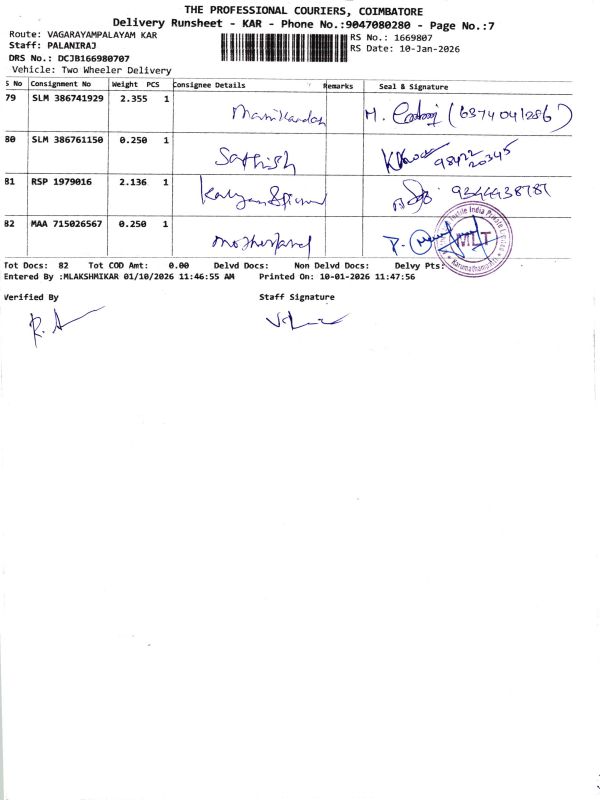 THE PROFESSIONAL COURIERS, COIMBATORE
Delivery Runsheet - KAR - Phone No.:9047080280 - Page No.:7
Route: VAGARAYAMPALAYAM KAR
RS No.: 1669807
Staff: PALANIRAJ
RS Date: 10-Jan-2026
DRS No.: DCJB166980707
Vehicle: Two Wheeler Delivery
S No Consignment No Weight PCS Consignee Details Remarks Seal & Signature
79 SLM 386741929 2.355 1 Manikandan M. (6374041286)
80 SLM 386761150 0.250 1 Sathish 98422 20345
81 RSP 1979016 2.136 1 9344938787
82 MAA 715026567 0.250 1 motherland P.
MLT
Tot Docs: 82 Tot COD Amt: 0.00 Delvd Docs: Non Delvd Docs: Delvy Pts:
Entered By :MLAKSHMIKAR 01/10/2026 11:46:55 AM Printed On: 10-01-2026 11:47:56
Verified By Staff Signature